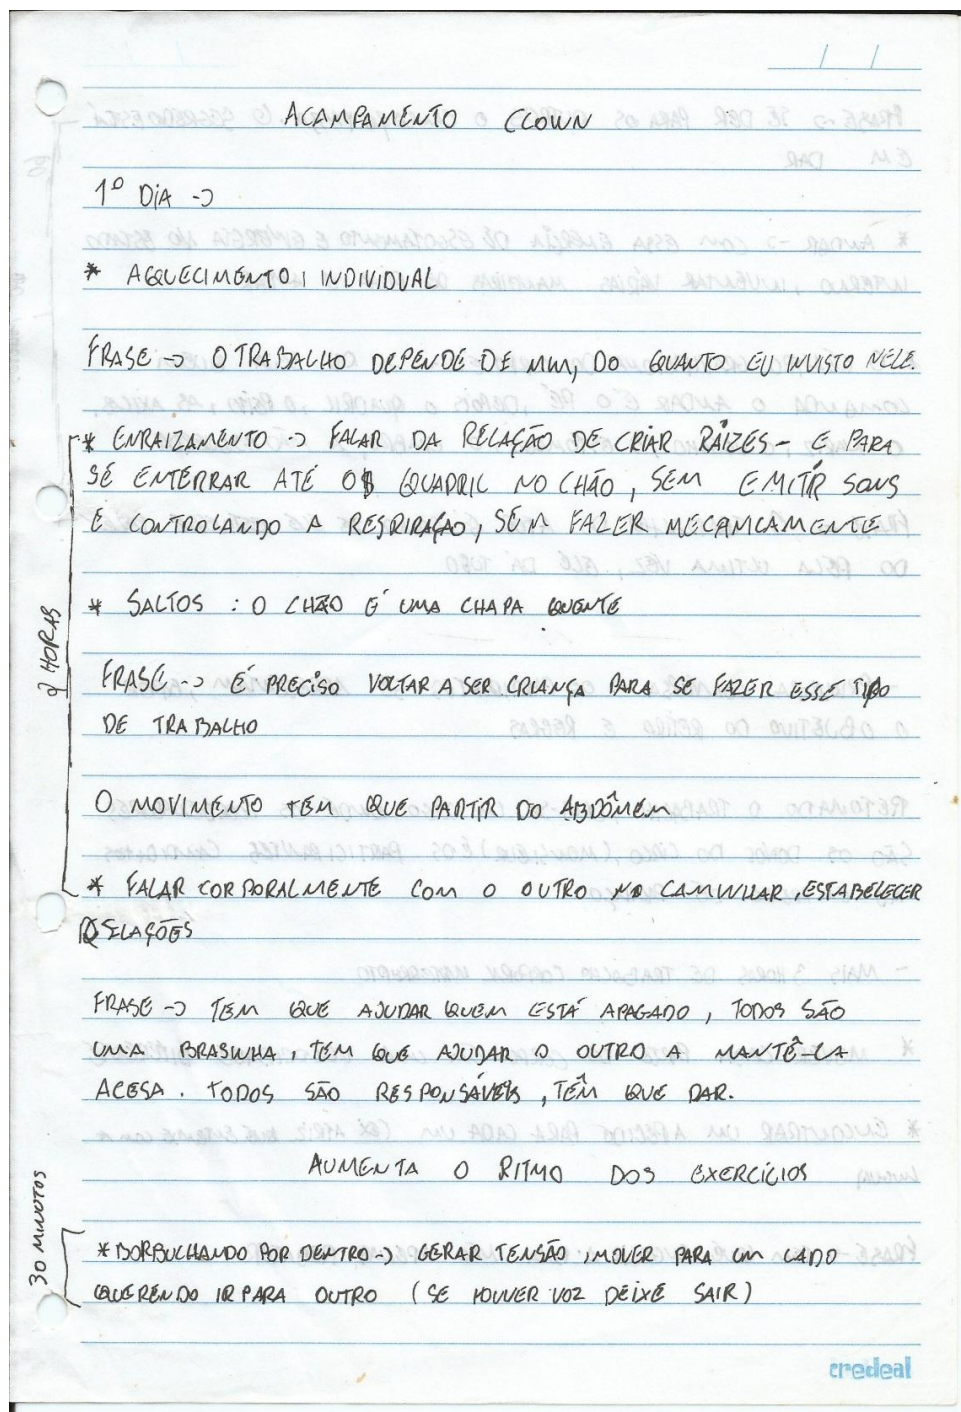 ACAMPAMENTO CLOWN
1º DIA ->
* AQUECIMENTO: INDIVIDUAL
FRASE -> O TRABALHO DEPENDE DE MIM, DO QUANTO EU INVISTO NELE.
* ENRAIZAMENTO -> FALAR DA RELAÇÃO DE CRIAR RAÍZES - E PARA
SE ENTERRAR ATÉ O QUADRIL NO CHÃO, SEM EMITIR SONS
E CONTROLANDO A RESPIRAÇÃO, SEM FAZER MECANICAMENTE
* SALTOS : O CHÃO É UMA CHAPA QUENTE
2 HORAS
FRASE -> É PRECISO VOLTAR A SER CRIANÇA PARA SE FAZER ESSE TIPO
DE TRABALHO
O MOVIMENTO TEM QUE PARTIR DO ABDÔMEM
* FALAR CORPORALMENTE COM O OUTRO NO CAMINHAR, ESTABELECER
RELAÇÕES
FRASE -> TEM QUE AJUDAR QUEM ESTÁ APAGADO, TODOS SÃO
UMA BRASINHA, TEM QUE AJUDAR O OUTRO A MANTÊ-LA
ACESA. TODOS SÃO RESPONSÁVEIS, TÊM QUE DAR.
AUMENTA O RITMO DOS EXERCÍCIOS
30 MINUTOS
* BORBULHANDO POR DENTRO -> GERAR TENSÃO, MOVER PARA UM LADO
QUERENDO IR PARA OUTRO (SE HOUVER VOZ DEIXE SAIR)
credeal